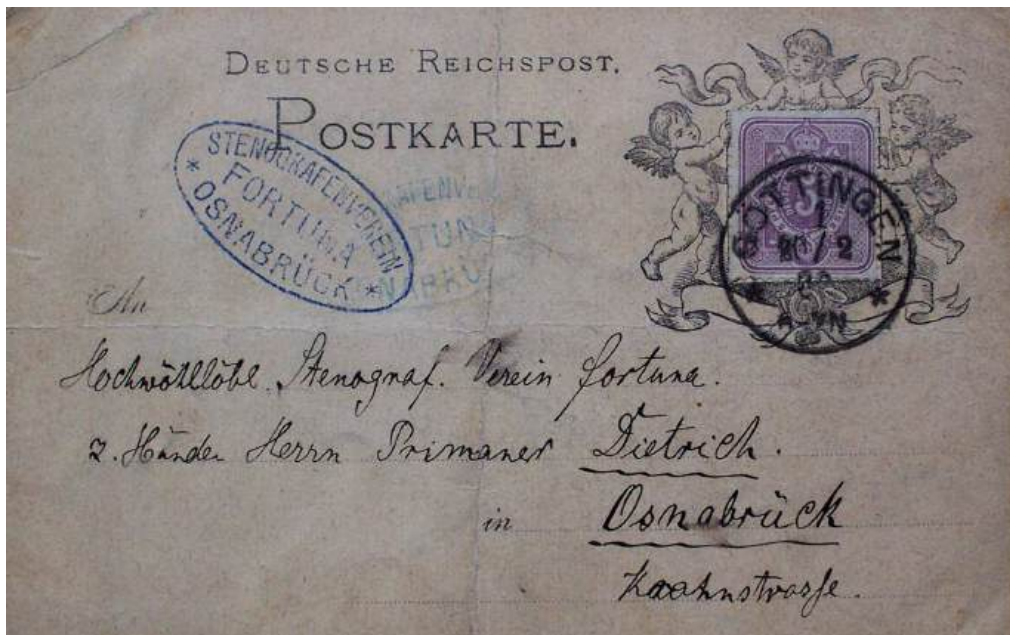 DEUTSCHE REICHSPOST.
POSTKARTE.
STENOGRAFENVEREIN
FORTUNA
* OSNABRÜCK *
GÖTTINGEN
20/2
An
Hochwöhllöbl. Stenograf. Verein fortuna.
z. Händen Herrn Primaner Dietrich.
in Osnabrück